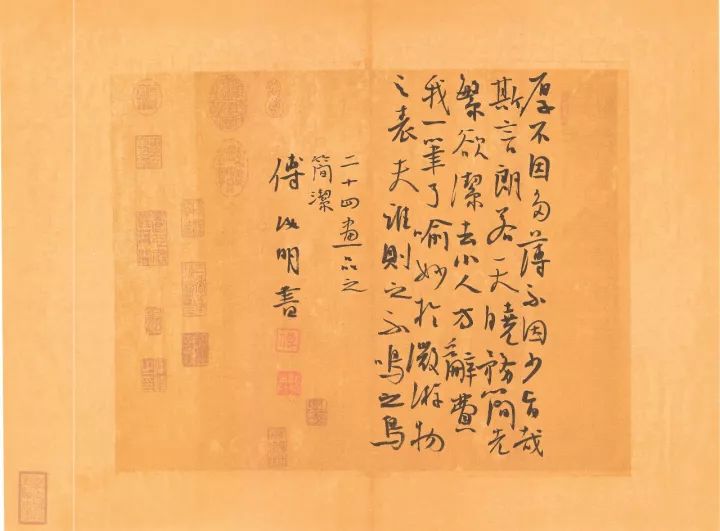 厚不因多薄不因少旨哉
斯言朗若天曉務簡先
繁欲潔去小人方辭費
我一筆了喻妙於微游物
之表夫誰則之不鳴之鳥
二十四畫品之
簡潔
傅明書